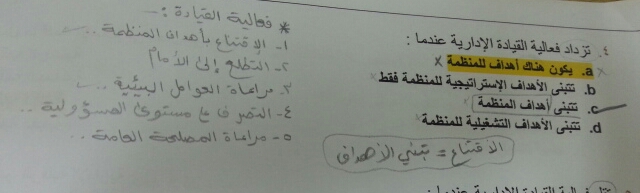 ٤. تزداد فعالية القيادة الإدارية عندما :
a. يكون هناك أهداف للمنظمة
b. تتبنى الأهداف الإستراتيجية للمنظمة فقط
c. تتبنى أهداف المنظمة
d. تتبنى الأهداف التشغيلية للمنظمة
الاقتناع = تبني الأهداف
* فعالية القيادة :-
١- الاقتناع بأهداف المنظمة ..
٢- التطلع إلى الأمام
٣- مراعاة العوامل البيئية ..
٤- التصرف على مستوى المسؤولية ..
٥- مراعاة المصلحة العامة ..
فعالية القيادة الإدارية عندما :